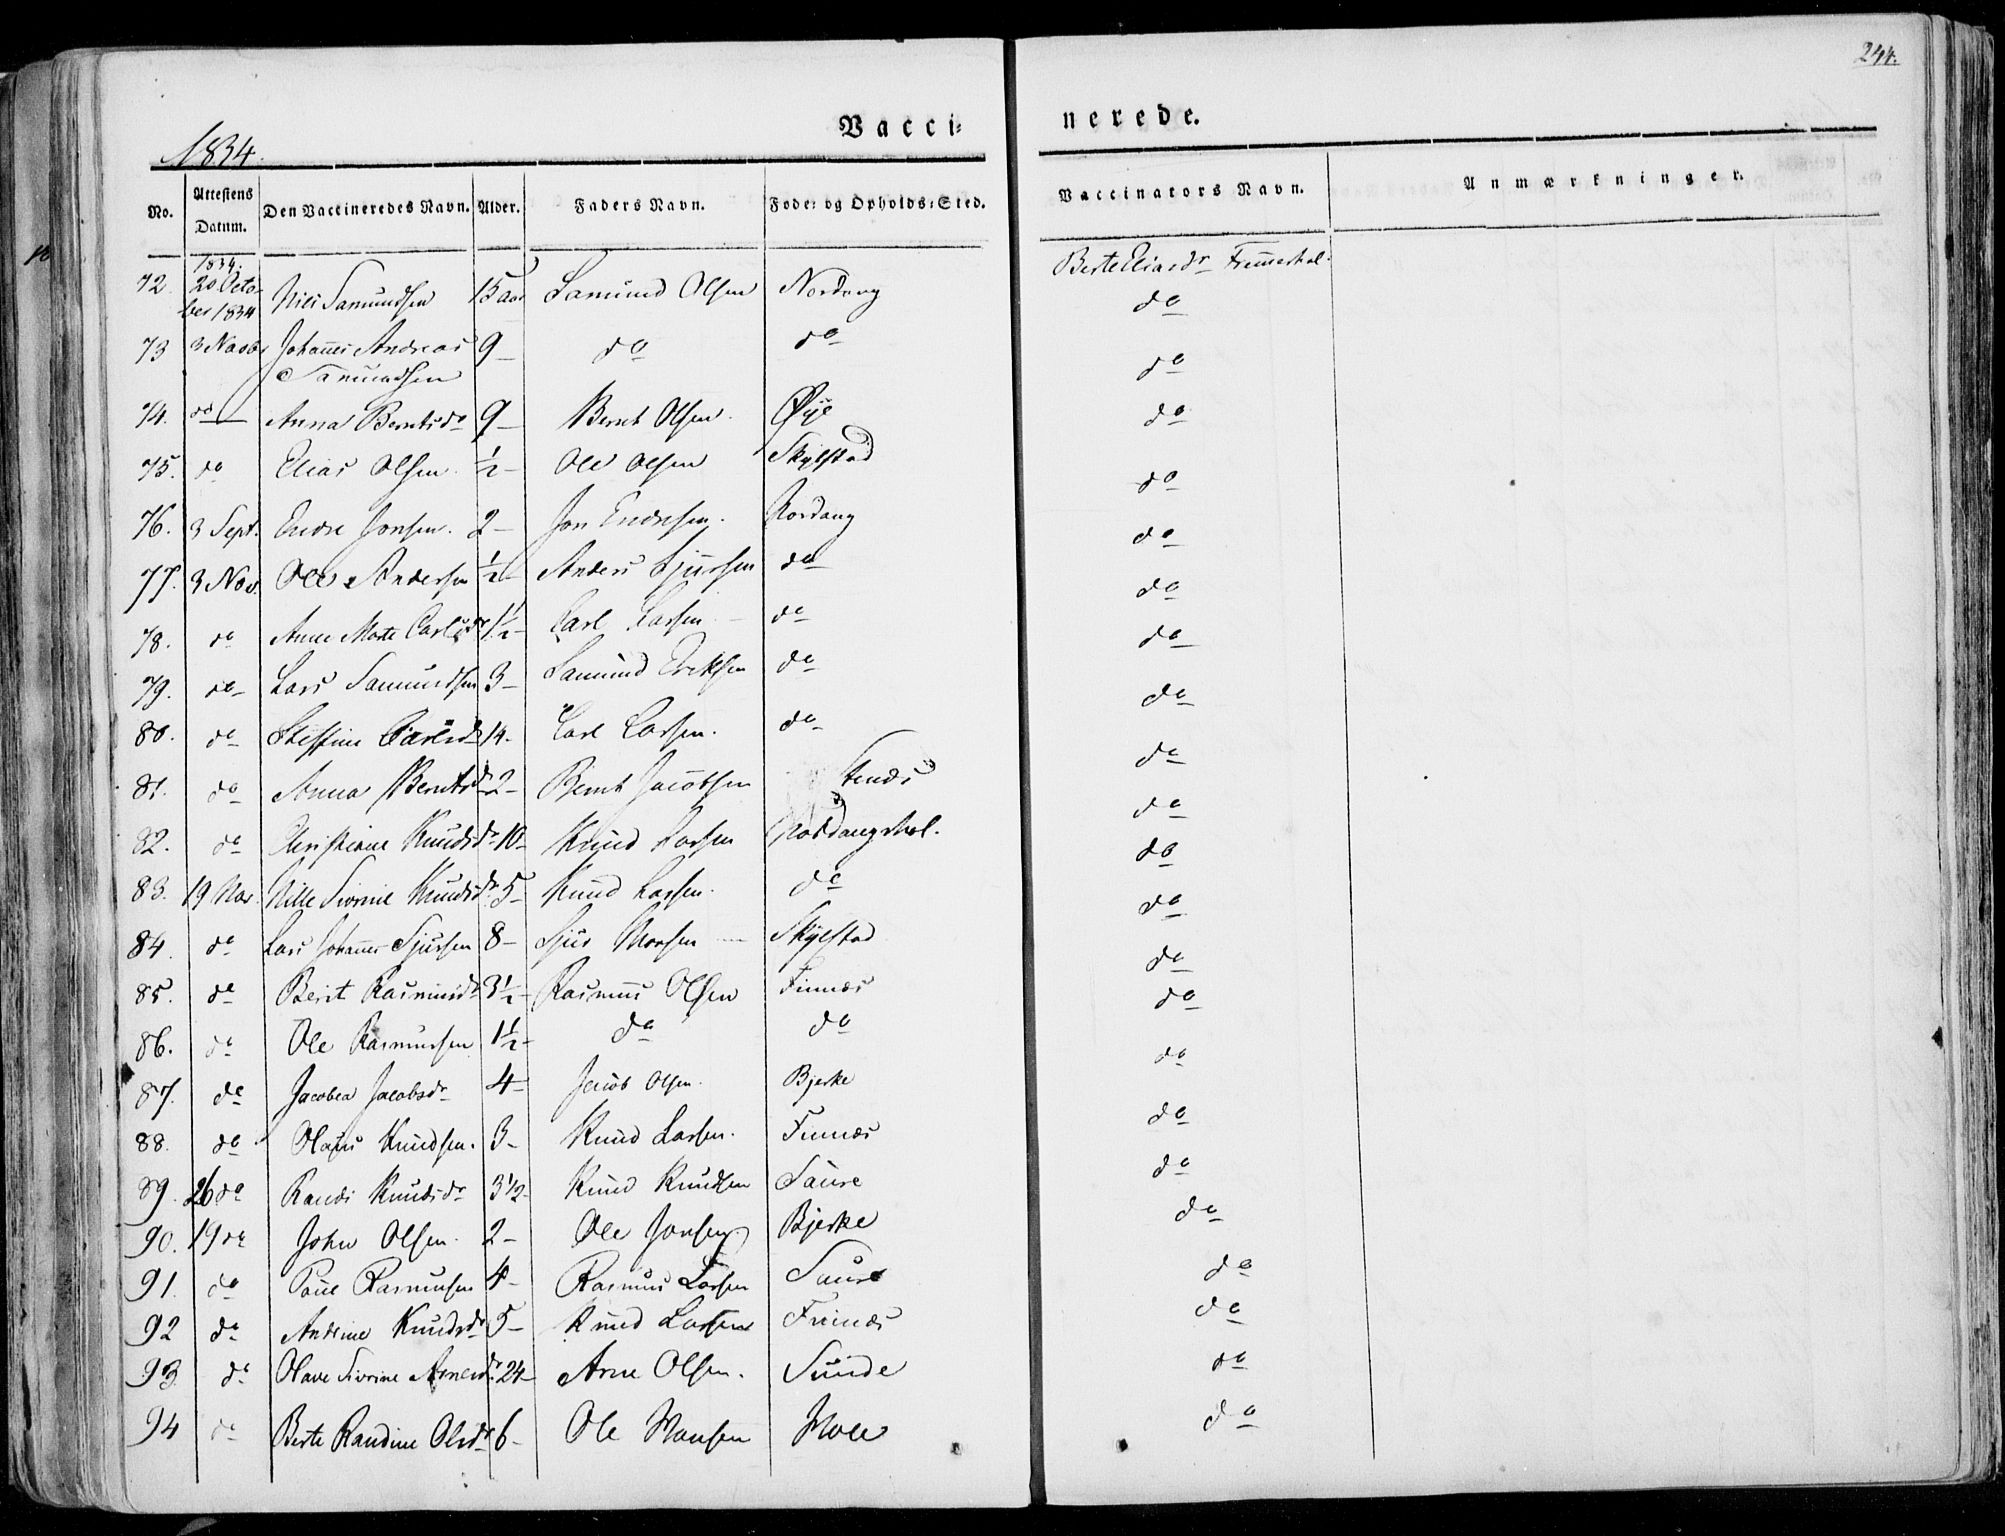 244.
Vacci= nerede.
1834.
No. Attestens Datum. Den Vaccineredes Navn. Alder. Faders Navn. Føde= og Opholds=Sted. Vaccinators Navn. Anmærkninger.
1834. Berte Eliasdr
72. 20 Octo- Nils Samundsen 15 aar Samund Olsen Nordang do
ber 1834
73 3 Novbr Johannes Andreas 9 — do do do
Samundsen
74. do — Anna Berntsdr 9 — Bernt Olsen. Øye do
75. do Elias Olsen. ½ — Ole Olsen Skylstad do
76. 3 Sept. Endre Jonsen. 2 — Jon Endresen. Nordang do
77. 3 Nov. Ole Andersen ½ — Anders Sjursen do do
78. do Anne Marte Carlsdr 1½ — Carl Larsen — do do
79. do Lars Samundsen 3 — Samund Eriksen do do
80. do Steffine Carlsdr 14. Carl Larsen. do do
81. do Anna Berntsdr 2 — Bernt Jacobsen Stenes do
82. do Christiane Knudsdr 10 — Knud Larsen Nordangshol. do
83. 19 Nov. Nille Sivrine Knudsdr 5 — Knud Larsen. do do
84. do Lars Johannes Sjursen 8 — Sjur Monsen — Skylstad do
85. do Berit Rasmusdr 3½ — Rasmus Olsen Finnæs do
86. do Ole Rasmussen 1½ — do do do
87. do Jacobea Jacobsdr 4 — Jacob Olsen. Bjerke do
88. do Olaus Knudsen. 3 — Knud Larsen. Finnæs do
89. 26 do Randi Knudsdr 3 1/2 — Knud Knudsen Saure do
90. 19 do John Olsen. 2 — Ole Jonsen. Bjerke do
91. do Paul Rasmusen 4 — Rasmus Larsen Saure do
92 do Andrine Knudsdr 5 — Knud Larsen Finnæs do
93. do Olave Sivrine Arnesdr 24 — Arne Olsen. Sunde do
94 do Berte Randine Olsdr 6 — Ole Hansen Hole do